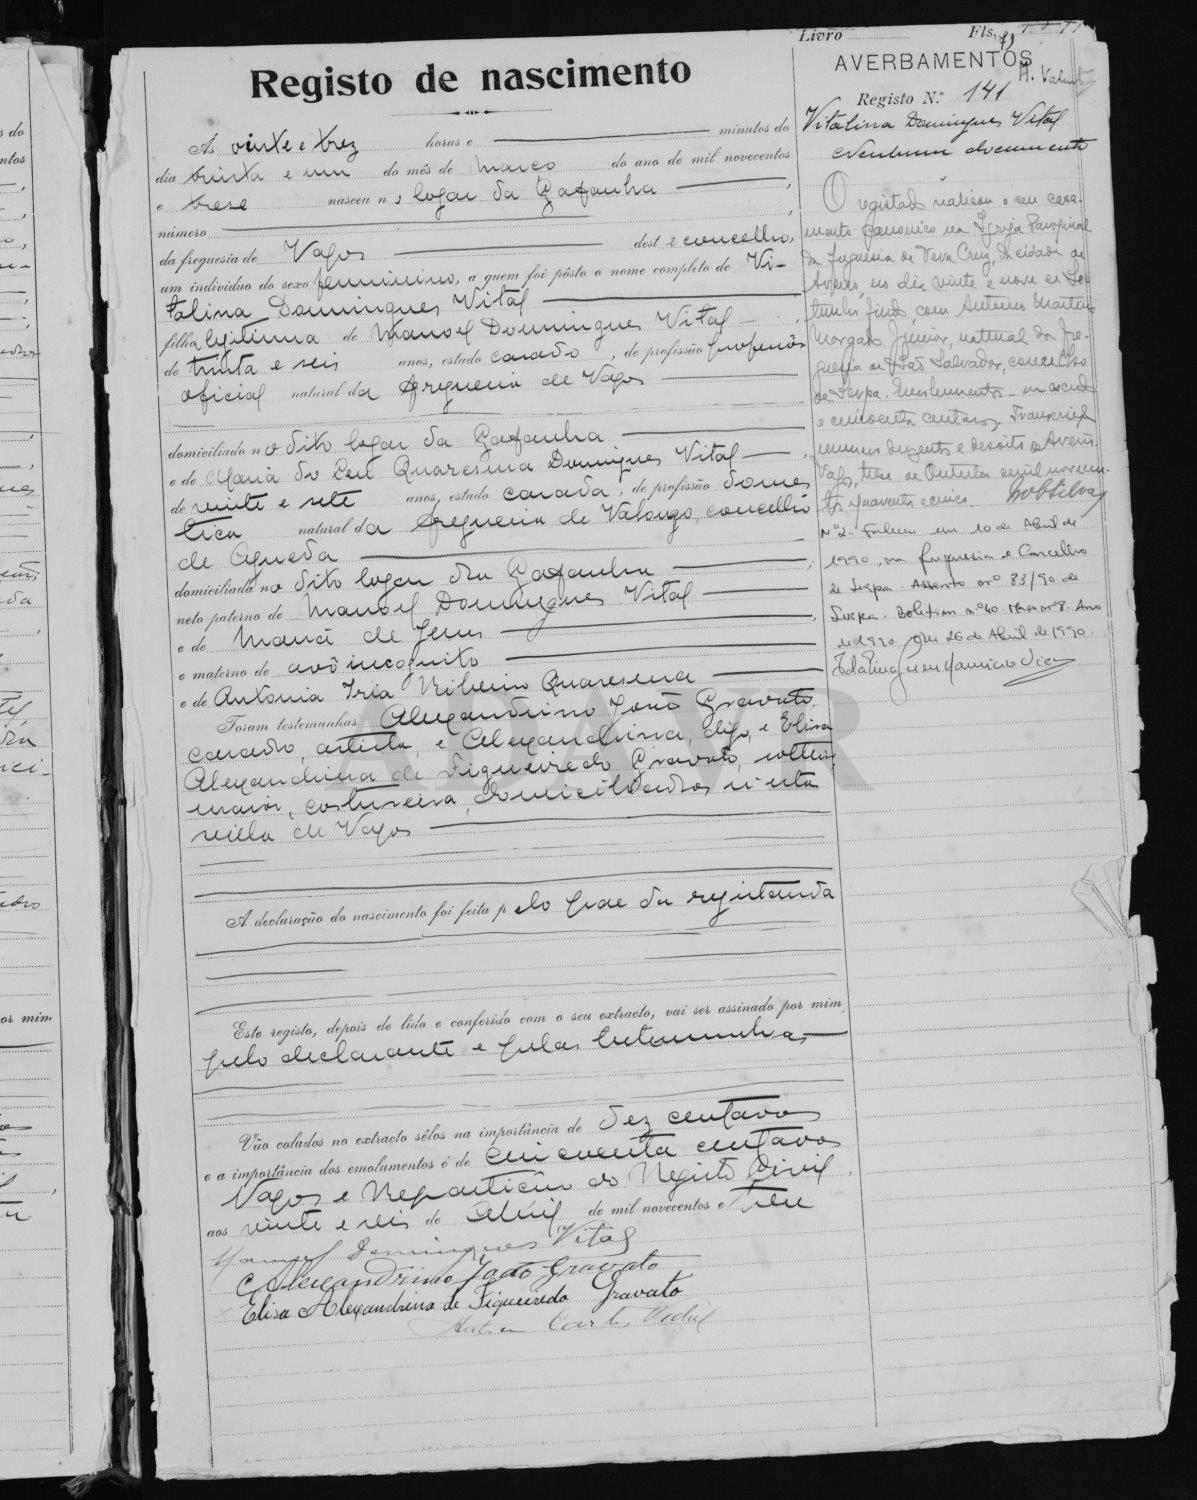 Livro Fls. 71
AVERBAMENTOS
Registo N.º 141
Registo de nascimento
Ás vinte e trez horas e minutos do
dia trinta e um do mês de Março do ano de mil novecentos
e treze nasceu no logar da Gafanha
número
da freguesia de Vagos deste concelho,
um individuo do sexo femininino, a quem foi pôsto o nome completo de Vi-
talina Domingues Vital
filha legitima de Manoel Domingues Vital
de trinta e seis anos, estado casado, de profissão professôr
oficial natural da freguesia de Vagos
domiciliado no dito logar da Gafanha
e de Maria do Ceu Quaresma Domingues Vital
de vinte e sete anos, estado casada, de profissão domes
tica natural da freguesia de Valongo, concelho
de Agueda
domiciliada no dito logar da Gafanha
neto paterno de Manoel Domingues Vital
e de Maria de Jesus
e materno de avô incognito
e de Antonia Iria Ribeiro Quaresma
Foram testemunhas Alexandrino João Gravato,
casado, artista e Alexandrina, digo, e Elisa
Alexandrina de Figueiredo Gravato, solteira,
maior, costureira, domiciliados n'esta
villa de Vagos
A declaração do nascimento foi feita pelo pae da registanda
Este registo, depois de lido e conferido com o seu extracto, vai ser assinado por mim,
pelo declarante e pelas testemunhas,
Vão colados no extracto sêlos na importância de dez centavos
e a importância dos emolumentos é de cincoenta centavos
Vagos e Repartição do Registo Civil,
aos vinte e seis de Abril de mil novecentos e treze
Manoel Domingues Vital
Alexandrino João Gravato
Elisa Alexandrina de Figueiredo Gravato
Carlos Vidal
Vitalina Domingues Vital
Nenhum documento
O registado realizou o seu casa-
mento canonico na Igreja Paroquial
da freguesia de Vera Cruz, da cidade de
Aveiro, no dia vinte e nove de Se-
tembro findo, com Antonio Martins
Morgado Junior, natural da fre-
guesia de São Salvador, concelho
de Serpa. Emolumentos - um escudo
e cincoenta centavos. Transcrição
numero duzentos e dezoito de Aveiro.
Vagos, treze de Outubro de mil novecen-
tos quarenta e cinco.
Nº2- Faleceu em 10 de Abril de
1990, na freguesia e Concelho
de Serpa. Assento nº 83/90 de
Serpa. Boletim nº 40. Maço nº 8. Ano
de 1990. Em 26 de Abril de 1990.
ADAVR